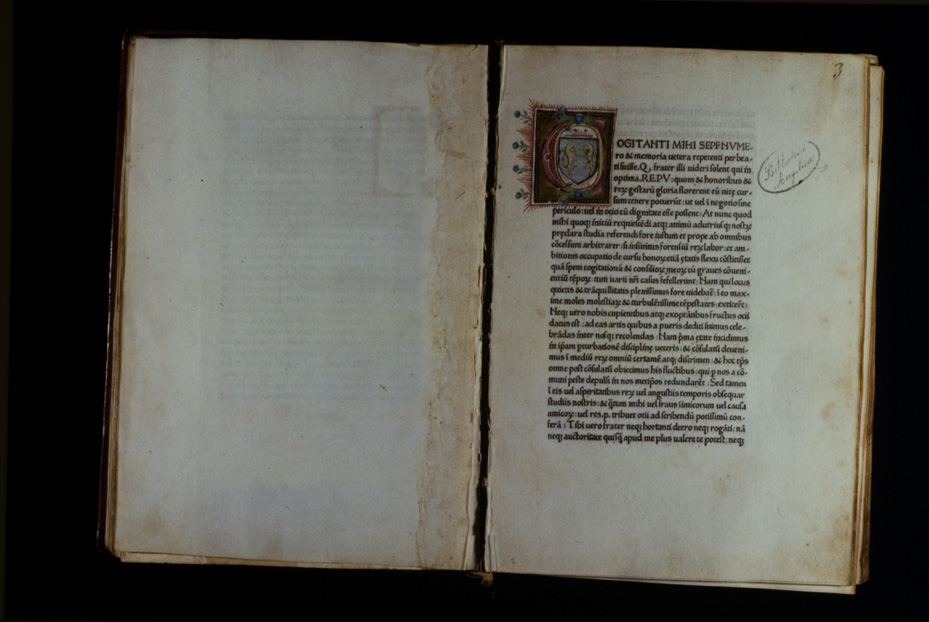 3
COGITANTI MIHI SEPENVME-
ro & memoria uetera repetenti perbea-
ti fuisse.Q. frater illi uideri solent qui in
optima.RE.PV: quom & honoribus &
reꝝ gestarū gloria florerent eū uitę cur-
sum tenere potuerūt: ut uel ī negotio sine
periculo: uel in ocio cū dignitate esse possent: At nunc quod
mihi quoqꝫ initiū requiescēdi atqꝫ animū ad utriusqꝫ nostꝝ
pręclara studia referendi fore iustum et prope ab omnibus
cōcessum arbitrarer: si infinitus forensiū reꝝ labor: et am-
bitionis occupatio de cursu honoꝝ etiā ętatis flexu cōstitisset
quā spem cogitationū & consilioꝝ meoꝝ cū graues cōueni-
entiū tēpoꝝ: tum uarii nr̄i casus fefellerunt: Nam qui locus
quietis & trāquillitatis plenissimus fore uidebat̄: ī eo max-
ime moles molestiaꝝ & turbulētissime tēpestates: extiter̄t:
Neqꝫ uero nobis cupientibus atqꝫ exoptātibus fructus ocii
datus est: ad eas artis quibus a pueris dediti fuimus cele-
brādas inter nosqꝫ recolendas: Nam p̄ma ętate incidimus
in ipam pturbationē disciplinę ueteris: & cōsulatū deueni-
mus ī mediū reꝝ omniū certamē atqꝫ discrimen: & hoc tp̄s
omne post cōsulatū obiecimus his fluctibus: qui p nos a cō-
muni peste depulsi in nos metip̄os redundarēt: Sed tamen
ī eis uel asperitatibus reꝝ uel angustiis temporis obsequar
studiis nostris: & q̄tum mihi uel fraus īimicorum uel causa
amicoꝝ: uel res.p. tribuet otii ad scribendū potissimū con-
ferā: Tibi uero frater neqꝫ hortanti deero neqꝫ rogāti: nā
neqꝫ auctoritate quisq̄ apud me plus ualere te potest: neqꝫ
Bibliotheca
Angelica